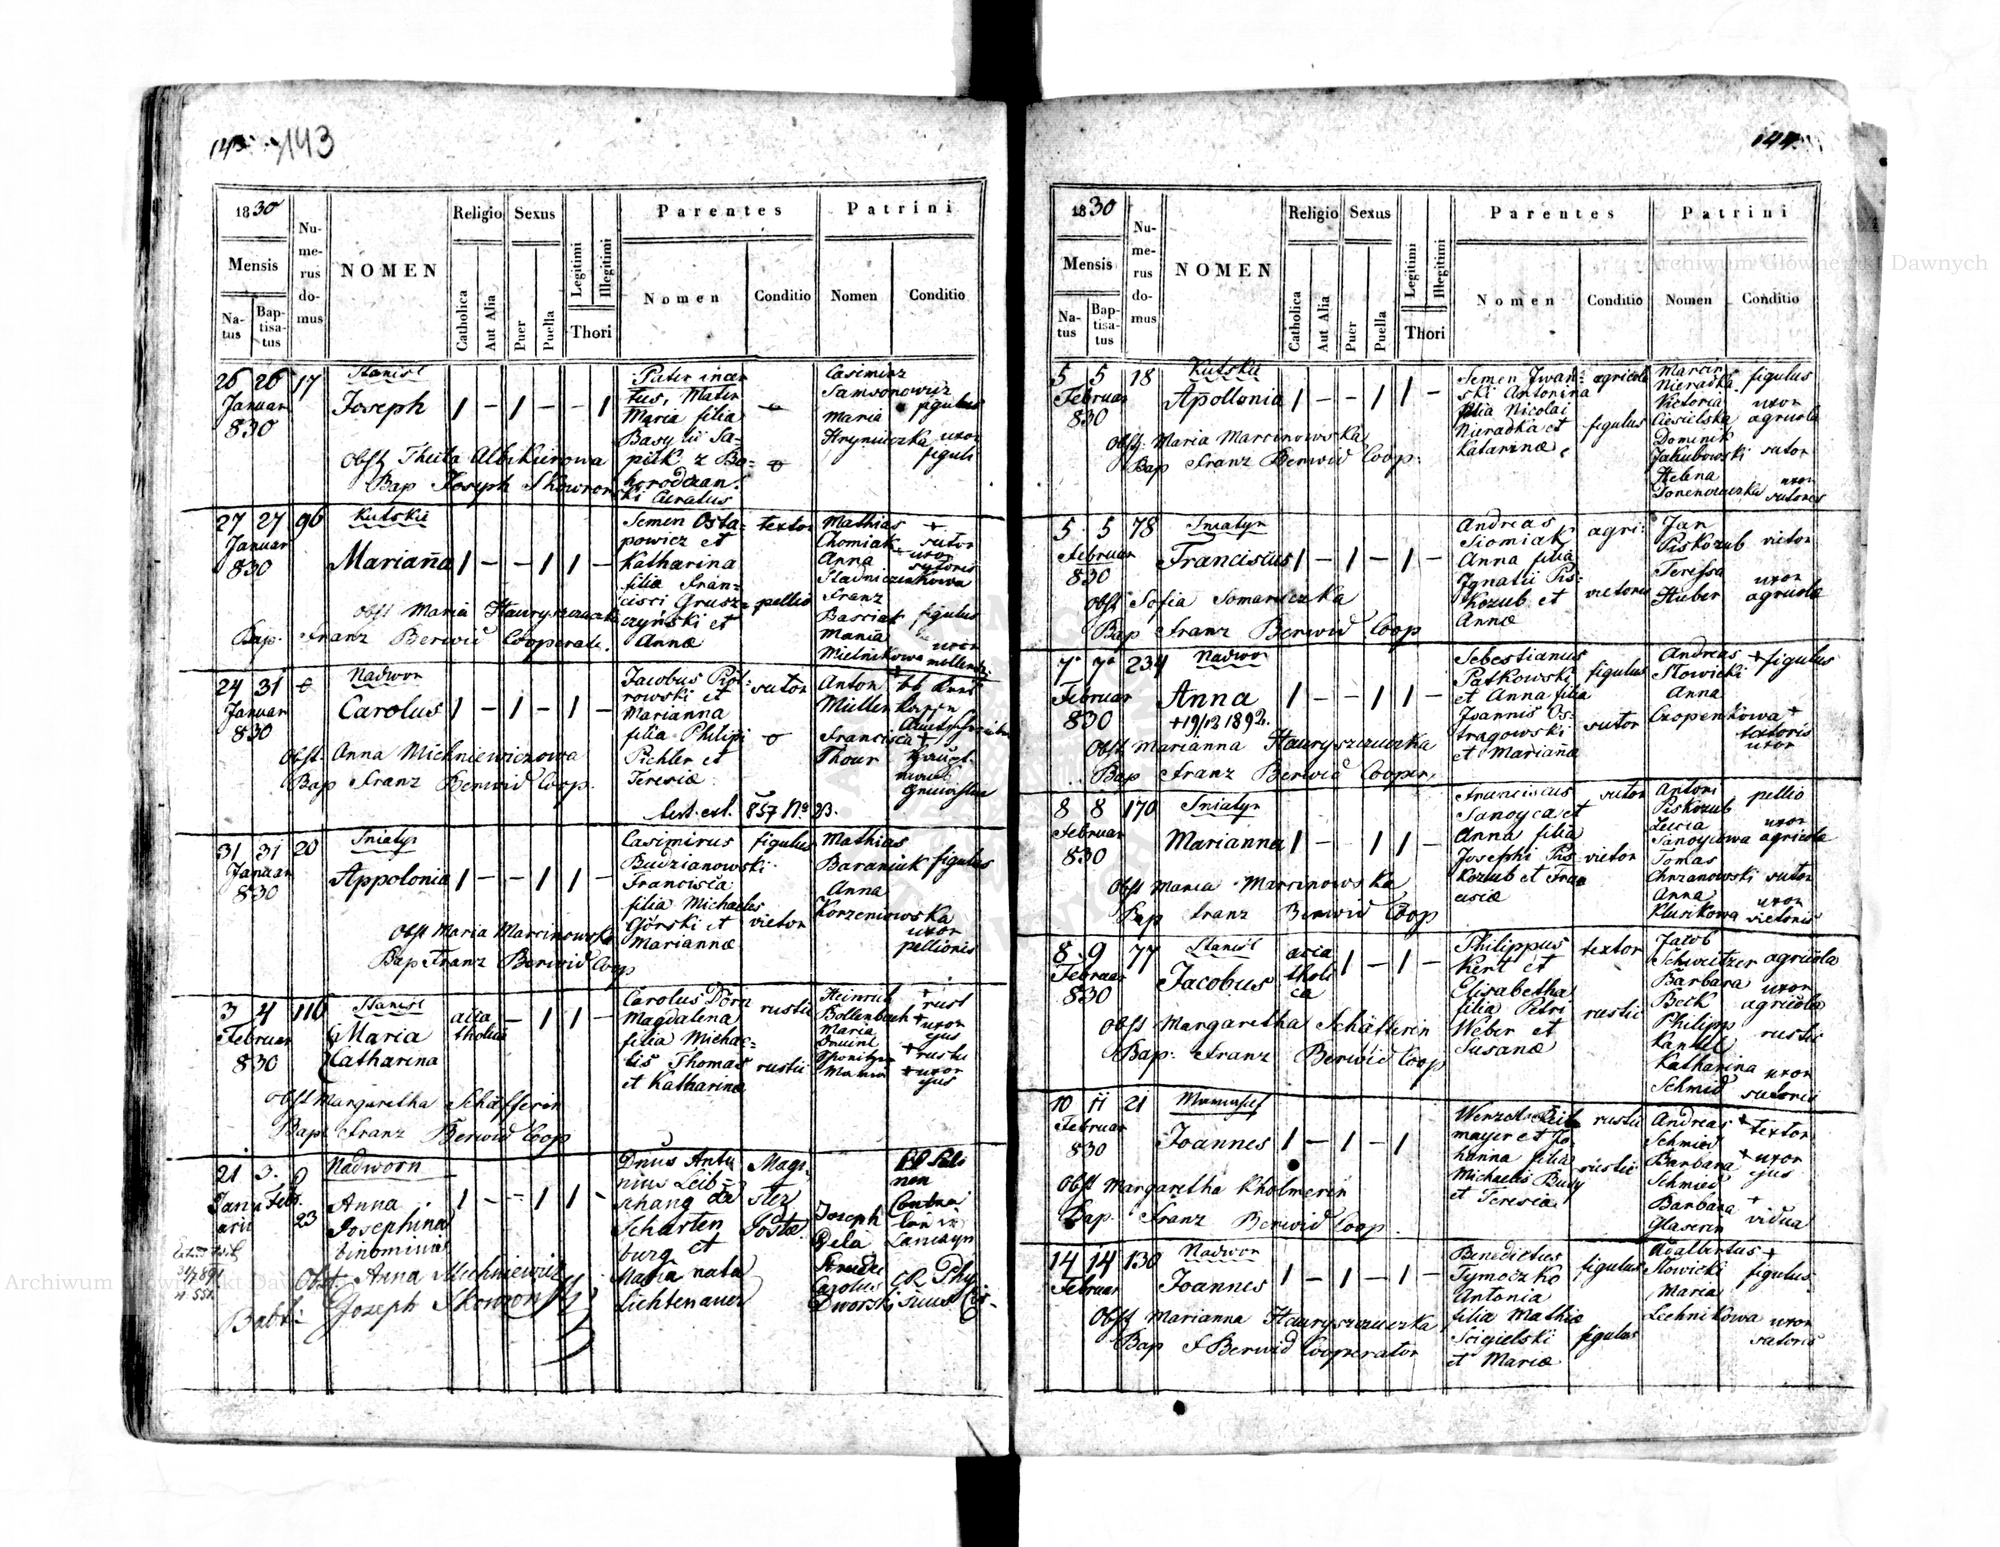 143
144
1830
Mensis
Natus
Baptisatus
Numerus domus
NOMEN
Religio
Catholica
Aut Alia
Sexus
Puer
Puella
Legitimi
Illegitimi
Thori
Parentes
Nomen
Conditio
Patrini
Nomen
Conditio
26 26 17
Januar
830
Stanisl
Joseph
1 – 1 – – 1
Pater incer
tus, Mater
Maria filia
Basylii Sa=
piuk z Bo=
horodczan.
Casimirz
Samsonowicz
figulus
Maria
Hryniuczka uxor
figuli
Obst Theita
Bap Joseph Skowronski Curatus
27 27 96
Januar
830
Kutskie
Marianna
1 – – 1 1 –
Semen Osta=
powicz et
Katharina
filia Fran=
cisci Grusz=
czynski et
Annæ
textor
pellio
Mathias
Chomiak sutor
Anna uxor
sutoris
Franz
Basciak figulus
Maria uxor
Mielnikowa
Obst Maria Hauryszczuczka
Bap. Franz Berwid Cooperat.
24 31
Januar
830
Nadwor
Carolus
1 – 1 – 1 –
Jacobus Piot=
rowski et
Marianna
filia Philipi
Pichler et
Teresiæ
sutor
Anton
Müller
Francisca
Thour
Obst. Anna Michniewiczowa
Bap Franz Berwid Coop.
31 31 20
Januar
830
Sniatyn
Appolonia
1 – – 1 1 –
Casimirus
Budzianowski
Francisca
filia Michaelis
Górski et
Mariannæ
figulus
vietor
Mathias
Baraniuk figulus
Anna
Korzeniowska
uxor
pellionis
Obst Maria Marcinowska
Bap Franz Berwid Coop
3 4 116
Februar
830
Stanisl
Maria
Catharina
aca
tholica
– 1 1 –
Carolus Dörn
Magdalena
filia Michae=
lis Thomas
et Katharinæ
rustic
rustic
Heinrich rust
Bollenbach uxor
Maria ejus
rustic
Maria uxor
ejus
Obst Margaretha Schäfferin
Bap. Franz Berwid Coop
21 3.
Janu Feb.
arii 23
Nadworn
Anna
Josephina
binominis
1 – – 1 1 –
Dnus Anto
nius Leib=
schang de
Scharten
burg et
Maria nata
Lichtenauer
Magi
ster
Postæ
Joseph
Carolus
Dworski
Obst Anna Michniewicz
Babt. Joseph Skowronski
1830
Mensis
Natus
Baptisatus
Numerus domus
NOMEN
Religio
Catholica
Aut Alia
Sexus
Puer
Puella
Legitimi
Illegitimi
Thori
Parentes
Nomen
Conditio
Patrini
Nomen
Conditio
5 5 18
Februar
830
Kutskie
Apollonia
1 – – 1 1 –
Semen Iwan=
ski Antonina
filia Nicolai
Nieradka et
Katarinæ
agricola
figulus
Marcin
Nieradka figulus
Victoria uxor
Ciesielska agricola
Dominik
Jakubowski sutor
Helena
uxor
sutoris
Obst. Maria Marcinowska
Bap Franz Berwid Coop.
5 5 78
Februar
830
Sniatyn
Franciscus
1 – 1 – 1 –
Andreas
Siomiak
Anna filia
Ignatii Pis=
kozub et
Annæ
agri:
vietoris
Jan
Piskozub vietor
Teressa
Huber uxor
agricola
Obst Sofia Somaruczka
Bap Franz Berwid Coop
7 7 234
Februar
830
Nadwor
Anna
+19/12 1892.
1 – – 1 1 –
Sebestianus
Patkowski
et Anna filia
Joannis Os=
tragowski
et Mariañæ
figulus
sutor
Andreas figulus
Slowicki
Anna
Czopenkowa
textoris
uxor
Obst Marianna Hauryszczuczka
Bap Franz Berwid Cooper.
8 8 170
Februar
830
Sniatyn
Marianna
1 – – 1 1 –
Franciscus
Sanoyca et
Anna filia
Josephi Pis
kozub et Fran
cisciæ
sutor
vietor
Antoni
Piskozub pellio
Lucia uxor
Sanoycowa agricola
Tomas
Chrzanowski sutor
Anna uxor
Plusikowa vietoris
Obst Maria Marcinowska
Bap Franz Berwid Coop
8 9 77
Februar
830
Stanisl
Jacobus
aca
tholi
ca
1 – 1 –
Philippus
Kert et
Elisabetha
filia Petri
Weber et
Susanæ
textor
rustic
Jacob
Schweitzer agricola
Barbara uxor
Beck agricola
Philipp
rustic
Katharina uxor
Schmid sutoris
Obst Margaretha Schäfferin
Bap. Franz Berwid Coop
10 11 21
Februar
830
Joannes
1 – 1 – 1
mayer et Jo=
hanna filia
Michaelis Budy
et Teresia
rustic
rustic
Andreas textor
Schmied
Barbara uxor
Schmied ejus
Barbara
Glaserin vidua
Obst Margaretha Kholmerin
Bap. Franz Berwid Coop.
14 14 130
Februar
Nadwor
Joannes
1 – 1 – 1 –
Benedictus
Tymoczko
Antonia
filia Mathiæ
Scigielski
et Mariæ
figulus
figulus
Adalbertus
Slowicki figulus
Maria
Lechnikowa uxor
sutoris
Obst Marianna Hauryszczuczka
Bap F Berwid Cooperator
Archiwum Główne Akt Dawnych
Archiwum Główne Akt Dawnych